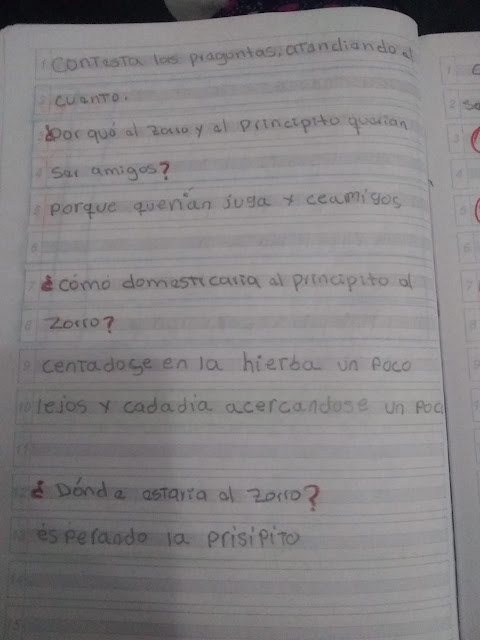 Contesta las praguntas, atandiando al
cuanto.
¿Por qué al zorro y al Principito quarian
sar amigos?
porque querian juga y ceamigos
¿cómo domesticaria al principito al
zorro?
centadose en la hierba un Poco
lejos y cadadia acercandose un poc
¿Dónda astaria al zorro?
esperando la prisipito